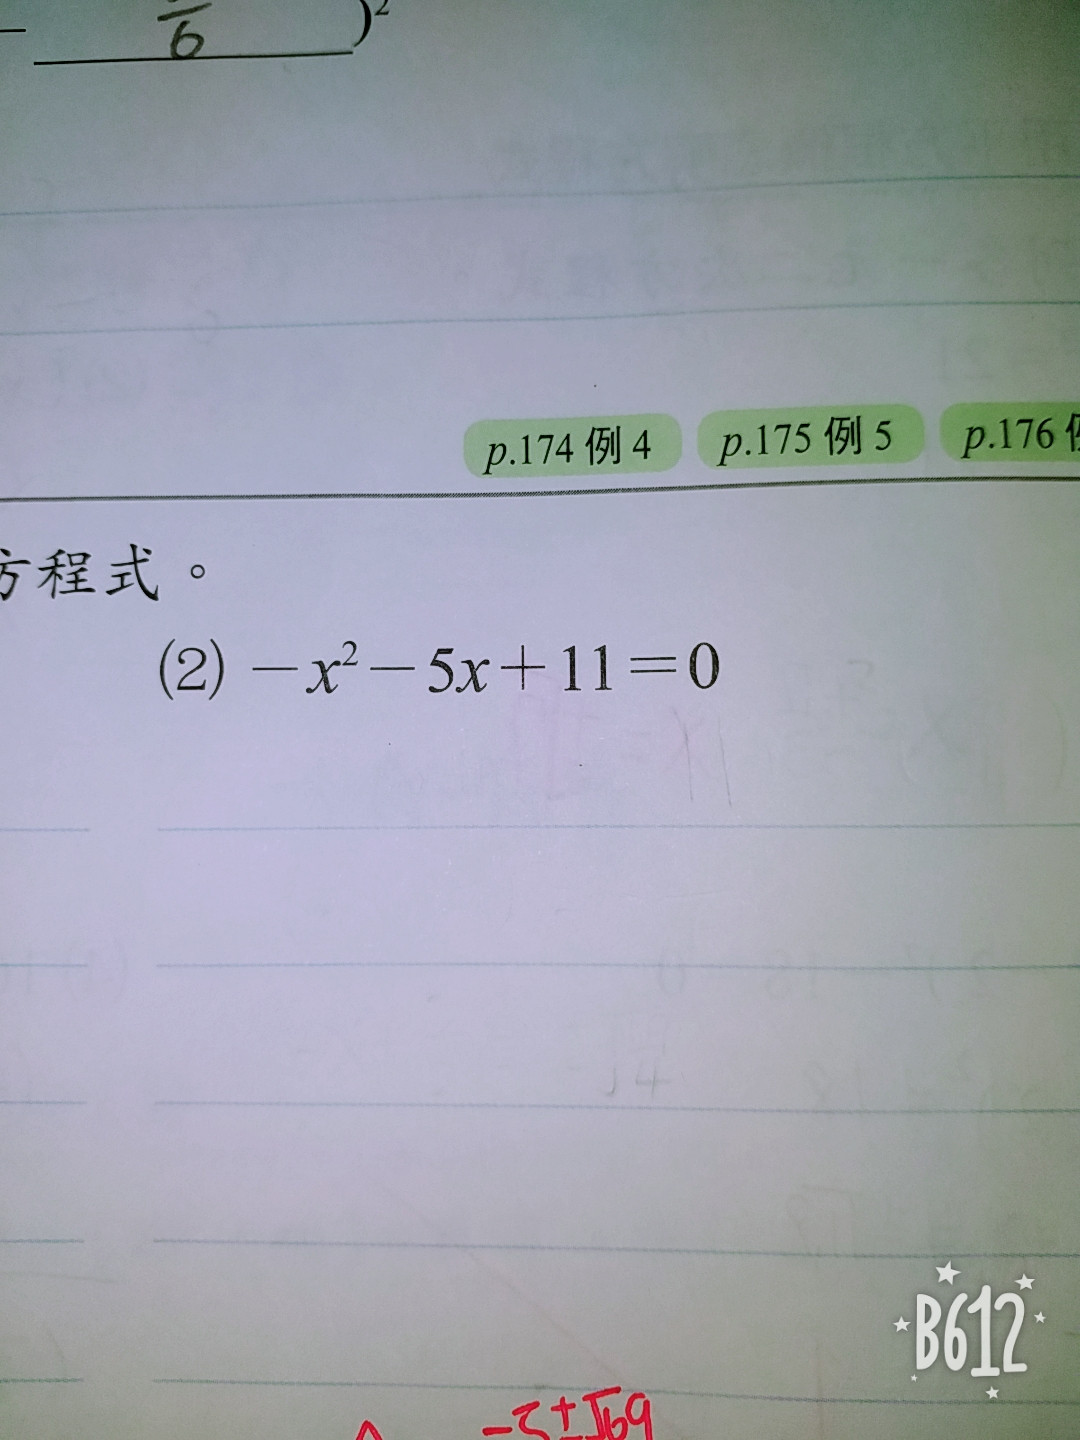 − 6 )²
p.174 例 4 p.175 例 5 p.176
方程式。
(2) −x²−5x+11=0
B612
−5±√69